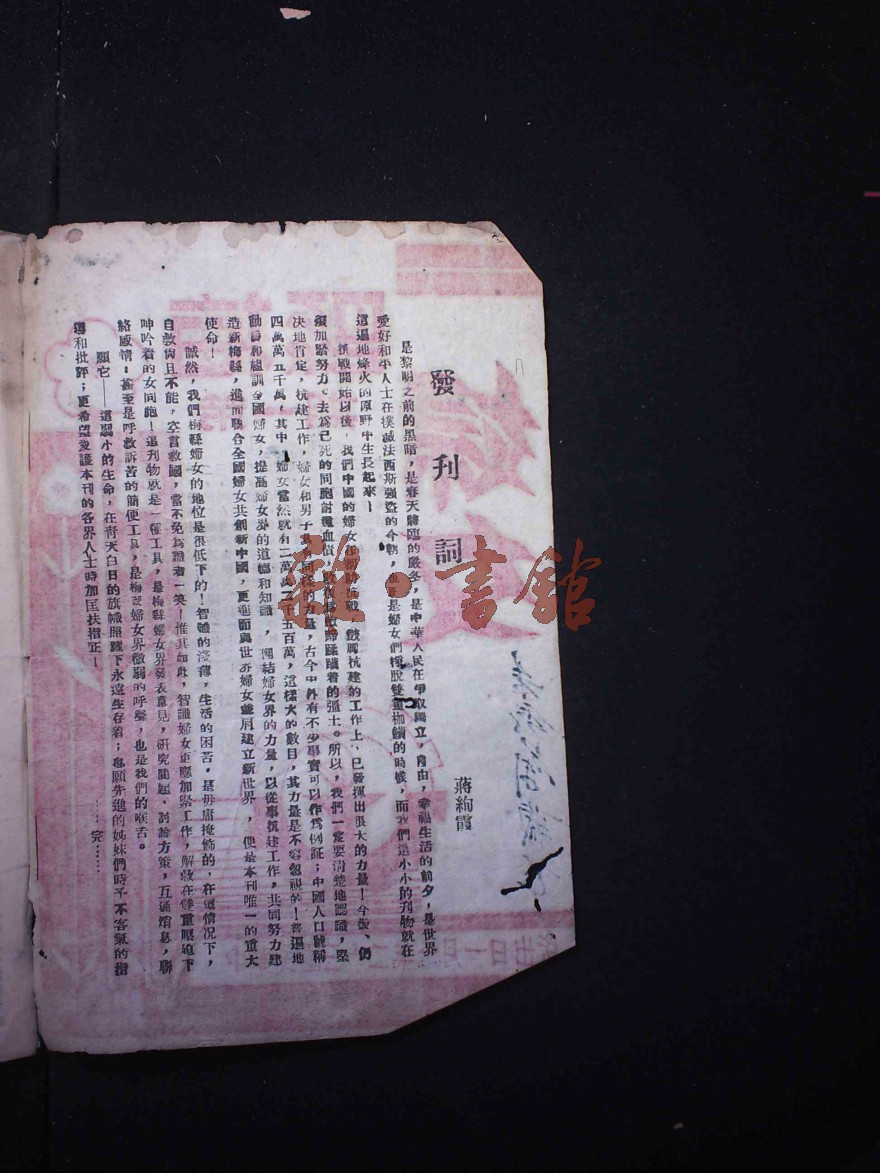 發刊詞
蔣絢霞
是黎明之前的黑暗，是春天降臨的嚴冬，是中華人民在爭取獨立，自由，幸福生活的前夕，是世界
愛好和平人士在撲滅法西斯強盜的今朝，也是婦女們掙脫雙重枷鎖的時候，而我們這小小的刊物就在
這遍地烽火的原野中生長起來！
抗戰開始以後，我們中國的婦女在抗戰，抗建的工作上、已發揮出很大的力量！今後、仍
須加緊努力。去為已死的同胞討還血債，蹂躪着的疆土。所以，我們一定要清楚地認識，堅
決地肯定，抗建工作，婦女和男子有同樣的力量，古今中外有不少事實可以作為例証；中國人口號稱
四萬萬五千萬，其中，婦女當然就有二萬萬二千五百萬，這樣大的數目，其力量是不容忽視的！普遍地
動員和組訓全國婦女，提高婦女界的道德和知識，團結婦女界的力量，以從事抗建工作，共同努力建
造新梅縣，進而聯合全國婦女共創新中國，更進而與世界婦女並肩建立新世界，便是本刊唯一的重大
使命！
誠然，我們梅縣婦女的地位是很低下的！智識的淺薄，生活的困苦，是毋庸掩飾的，在這情況下，
自救尚且不能，空言救國，當不免為識者一笑！惟其如此，智識婦女更應加緊工作，解救在雙重壓迫下
呻吟着的女同胞！這刊物就是一種工具，是梅縣婦女界發表意見，研究問題，討論方策，互通消息，聯
絡感情，甚至是呼救訴苦的簡便工具，是梅縣婦女界微弱的呼聲，也是我們的喉舌。
願它——這弱小的生命，在青天白日的旗幟照耀下永遠生存着；也願先進的姊妹們時予不客氣的指
導和批評；更希望愛護本刊的各界人士時加匡扶指正！
……完……
雜·書館